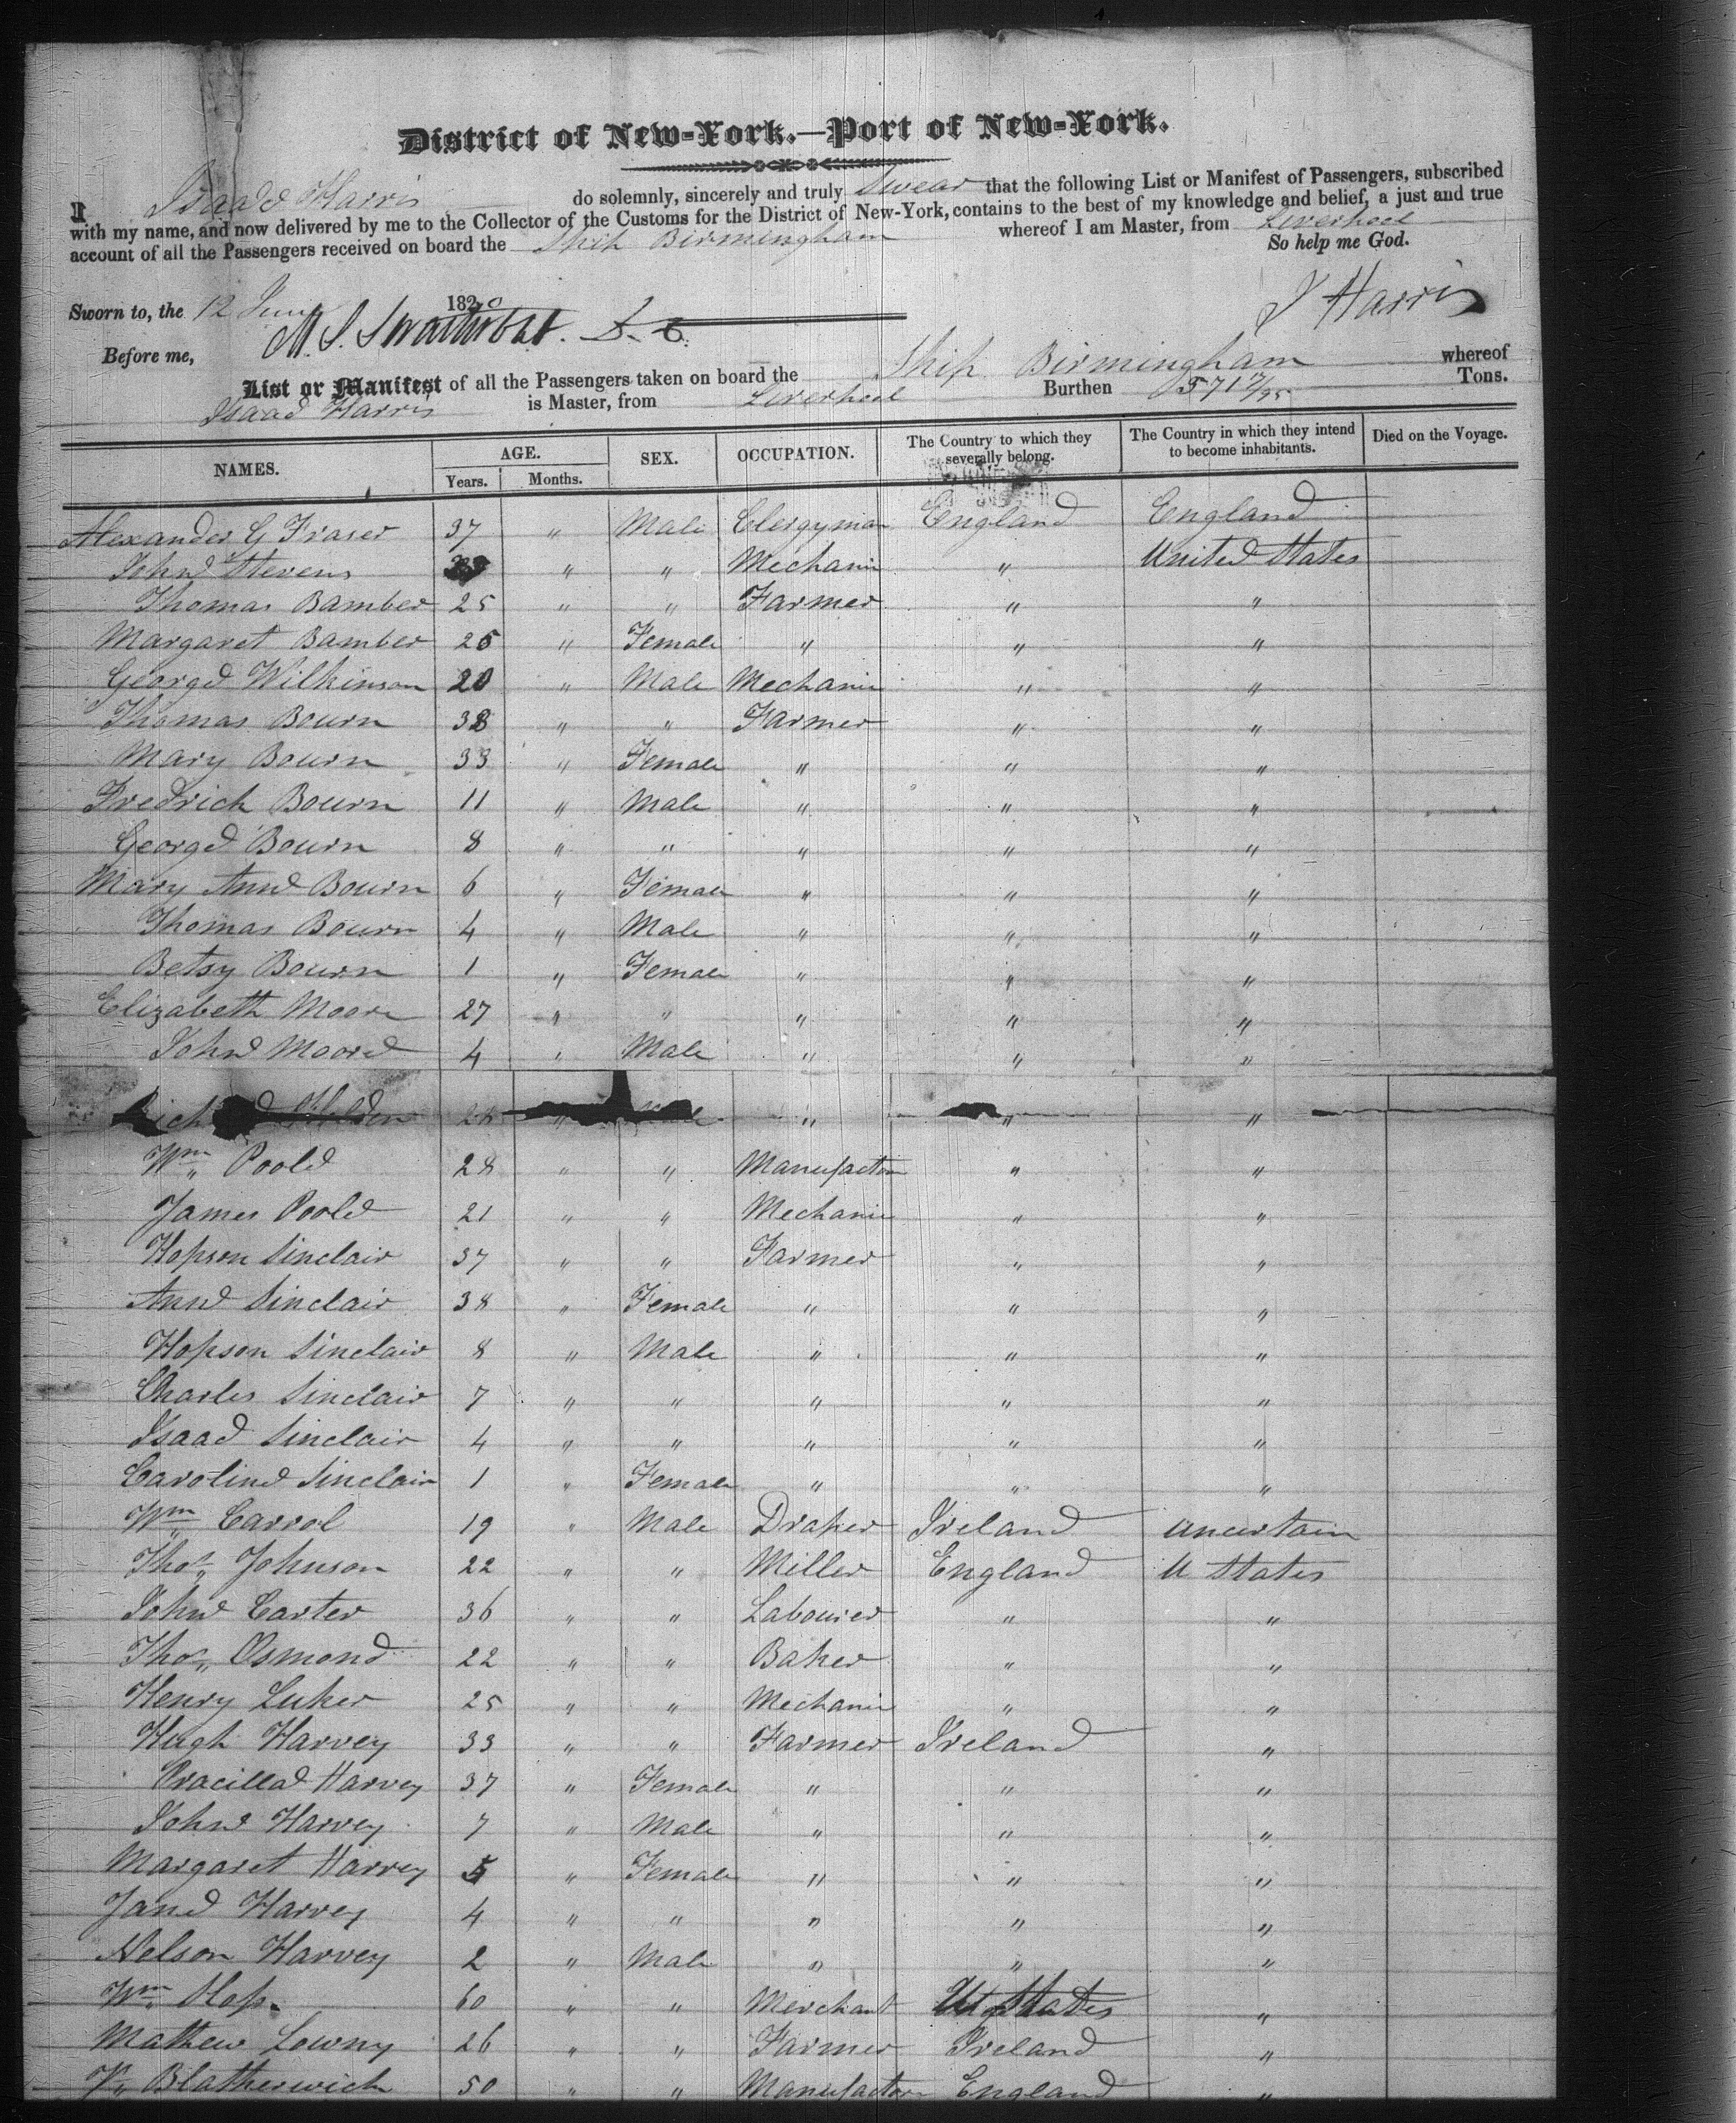 District of New-York.—Port of New-York.
I Isaac Harris do solemnly, sincerely and truly Swear that the following List or Manifest of Passengers, subscribed
with my name, and now delivered by me to the Collector of the Customs for the District of New-York, contains to the best of my knowledge and belief, a just and true
account of all the Passengers received on board the Ship Birmingham whereof I am Master, from Liverpool
So help me God.
Sworn to, the 12 June 18
I Harris
Before me,
List or Manifest of all the Passengers taken on board the Ship Birmingham whereof
Isaac Harris is Master, from Liverpool Burthen 571 Tons.
NAMES. AGE. SEX. OCCUPATION. The Country to which they severally belong. The Country in which they intend to become inhabitants. Died on the Voyage.
Years. Months.
Alexander G Fraser 37 " Male Clergyman England England
John Stevens " " Mechanic " United States
Thomas Bamber 25 " " Farmer " "
Margaret Bamber 25 " Female " " "
George Wilkinson 20 " Male Mechanic " "
Thomas Bourn 33 " " Farmer " "
Mary Bourn 33 " Female " " "
Fredrick Bourn 11 " Male " " "
George Bourn 8 " " " " "
Mary Anne Bourn 6 " Female " " "
Thomas Bourn 4 " Male " " "
Betsy Bourn 1 " Female " " "
Elizabeth Moore 27 " " " " "
John Moore 4 " Male " " "
26 " " " "
Wm Poole 28 " " Manufactor " "
James Poole 21 " " Mechanic " "
Hopson Sinclair 37 " " Farmer " "
Anne Sinclair 38 " Female " " "
Hopson Sinclair 8 " Male " " "
Charles Sinclair 7 " " " " "
Isaac Sinclair 4 " " " " "
Caroline Sinclair 1 " Female " " "
Wm Carrol 19 " Male Draper Ireland uncertain
Thos Johnson 22 " " Miller England U States
John Carter 36 " " Labourer " "
Thos Osmond 22 " " Baker " "
Henry Luker 25 " " Mechanic " "
Hugh Harvey 33 " " Farmer Ireland "
Pracilla Harvey 37 " Female " " "
John Harvey 7 " Male " " "
Margaret Harvey 5 " Female " " "
Jane Harvey 4 " " " " "
Nelson Harvey 2 " Male " " "
Wm 60 " " Merchant U States "
Mathew Lowny 26 " " Farmer Ireland "
Blatherwick 50 " " Manufactor England "